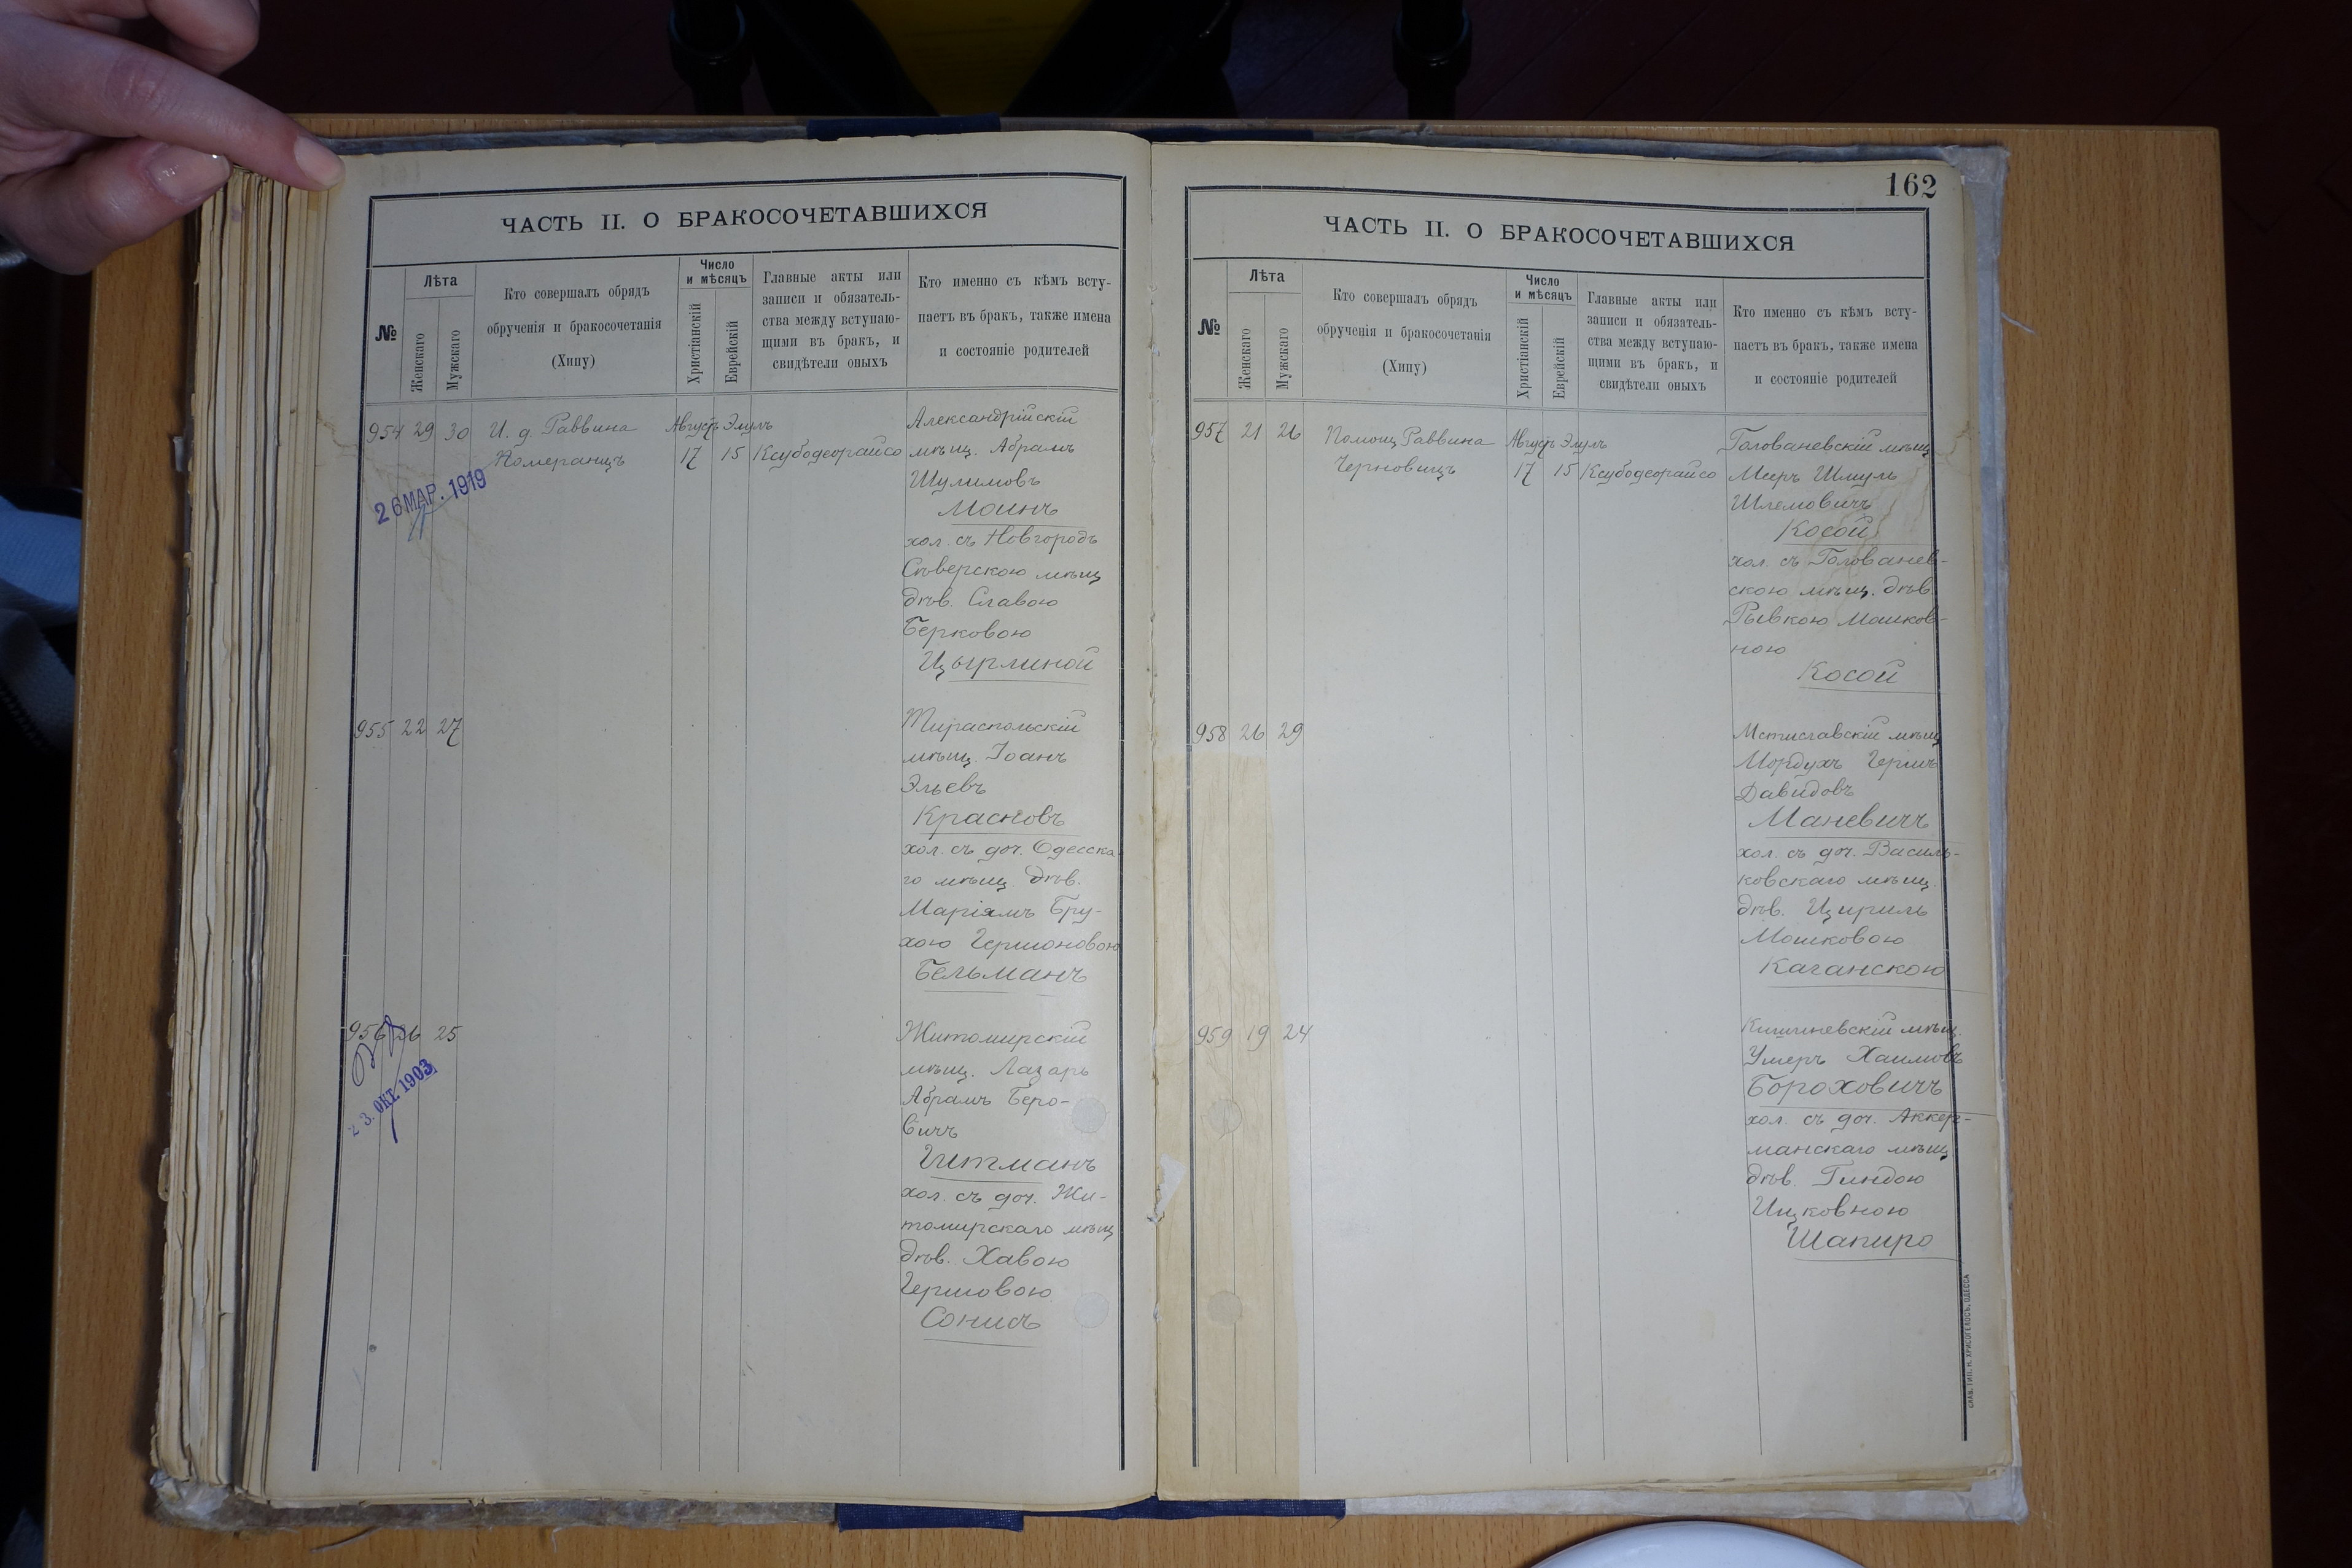 ЧАСТЬ II. О БРАКОСОЧЕТАВШИХСЯ
№
Лѣта
Женскаго
Мужскаго
Кто совершалъ обрядъ
обрученія и бракосочетанія
(Хипу)
Число
и мѣсяцъ
Христіанскій
Еврейскій
Главные акты или
записи и обязатель-
ства между вступаю-
щими въ бракъ, и
свидѣтели оныхъ
Кто именно съ кѣмъ всту-
паетъ въ бракъ, также имена
и состояніе родителей
954 29 30 И. д. Раввина Августъ Элулъ
Померанцъ 17 15 Ксубодеорайсо
26 МАР. 1919
Александрійскій
мѣщ. Абрамъ
Шулимовъ
Моинъ
хол. съ Новгородъ
Сѣверскою мѣщ
дѣв. Славою
Берковою
Цырлиной
955 22 27
Тираспольскій
мѣщ. Іоанъ
Эльевъ
Красновъ
хол. съ доч. Одесска-
го мѣщ. дѣв.
Маріямъ Бру-
хою Гершоновою
Бельманъ
956 26 25
23. ОКТ. 1903
Житомирскій
мѣщ. Лазарь
Абрамъ Беро-
вичъ
Гитманъ
хол. съ доч. Жи-
томирскаго мѣщ
дѣв. Хавою
Гершовою
Сонисъ
162
ЧАСТЬ II. О БРАКОСОЧЕТАВШИХСЯ
№
Лѣта
Женскаго
Мужскаго
Кто совершалъ обрядъ
обрученія и бракосочетанія
(Хипу)
Число
и мѣсяцъ
Христіанскій
Еврейскій
Главные акты или
записи и обязатель-
ства между вступаю-
щими въ бракъ, и
свидѣтели оныхъ
Кто именно съ кѣмъ всту-
паетъ въ бракъ, также имена
и состояніе родителей
957 21 26 Помощ Раввина Августъ Элулъ
Черновицъ 17 15 Ксубодеорайсо
Голованевскій мѣщ
Меръ Шмуль
Шлемовичъ
Косой
хол. съ Голованев-
скою мѣщ. дѣв.
Рывкою Мошков-
ною
Косой
958 26 29
Мстиславскій мѣщ
Мордухъ Гершъ
Давидовъ
Маневичъ
хол. съ доч. Василь-
ковскаго мѣщ.
дѣв. Цириль
Мошковою
Каганскою
959 19 24
Кишиневскій мѣщ.
Умеръ Хаимовъ
Бороховичъ
хол. съ доч. Аккер-
манскаго мѣщ
дѣв. Гиндою
Ицковною
Шапиро
СЛАВ. ТИП. Н. ХРИСОГЕЛОСЪ, ОДЕССА